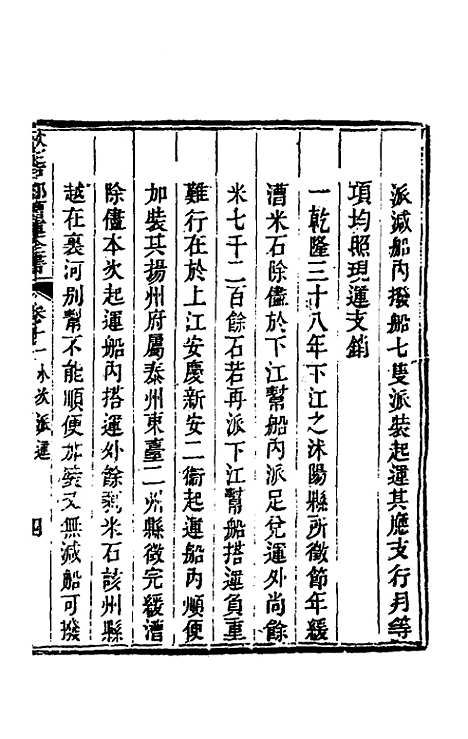 派減船內撥船七隻派裝起運其應支行月等
項均照現運支銷
一乾隆三十八年下江之沭陽縣所徵節年緩
漕米石除儘於下江幫船內派足兌運外尚餘
米七千二百餘石若再派下江幫船搭運負重
難行在於上江安慶新安二衞起運船內順便
加裝其揚州府屬泰州東臺二州縣徵完緩漕
除儘本次起運船內搭運外餘剩米石該州縣
越在裏河別幫不能順便加裝又無減船可撥
戶部漕運全書 卷十一 派運 四